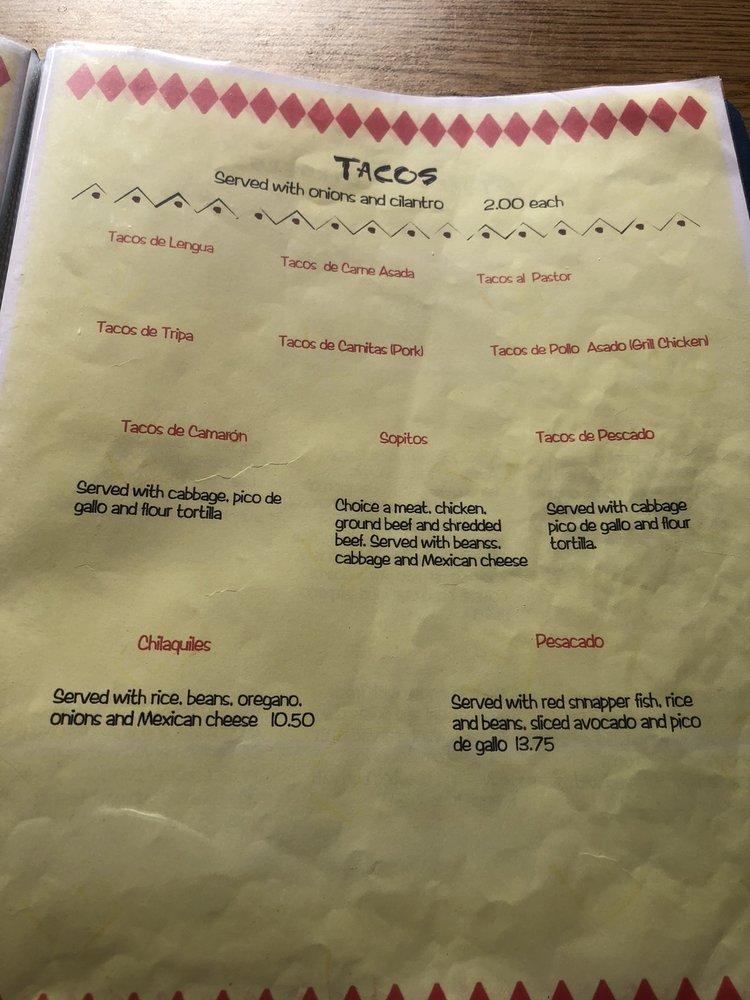 TACOS
Served with onions and cilantro 2.00 each
Tacos de Lengua
Tacos de Carne Asada
Tacos al Pastor
Tacos de Tripa
Tacos de Carnitas (Pork)
Tacos de Pollo Asado (Grill Chicken)
Tacos de Camarón
Served with cabbage, pico de
gallo and flour tortilla
Sopitos
Choice a meat, chicken,
ground beef and shredded
beef. Served with beanss,
cabbage and Mexican cheese
Tacos de Pescado
Served with cabbage
pico de gallo and flour
tortilla.
Chilaquiles
Served with rice, beans, oregano,
onions and Mexican cheese 10.50
Pesacado
Served with red snnapper fish, rice
and beans, sliced avocado and pico
de gallo 13.75